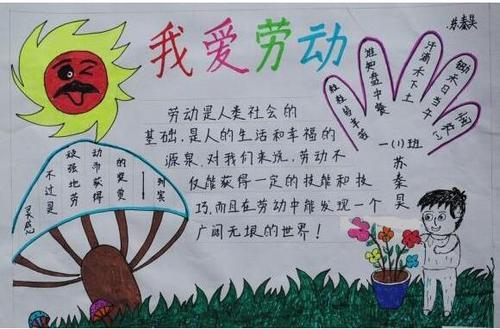 我爱劳动
苏秦昊
劳动是人类社会的
基础,是人的生活和幸福的
源泉,对我们来说,劳动不
仅能获得一定的技能和技
巧,而且在劳动中能发现一个
广阔无垠的世界!
锄禾日当午
汗滴禾下土
谁知盘中餐
粒粒皆辛苦
一(1)班
苏秦昊
灵感
不过是
顽强地劳
动而获得
的奖赏
——列宾